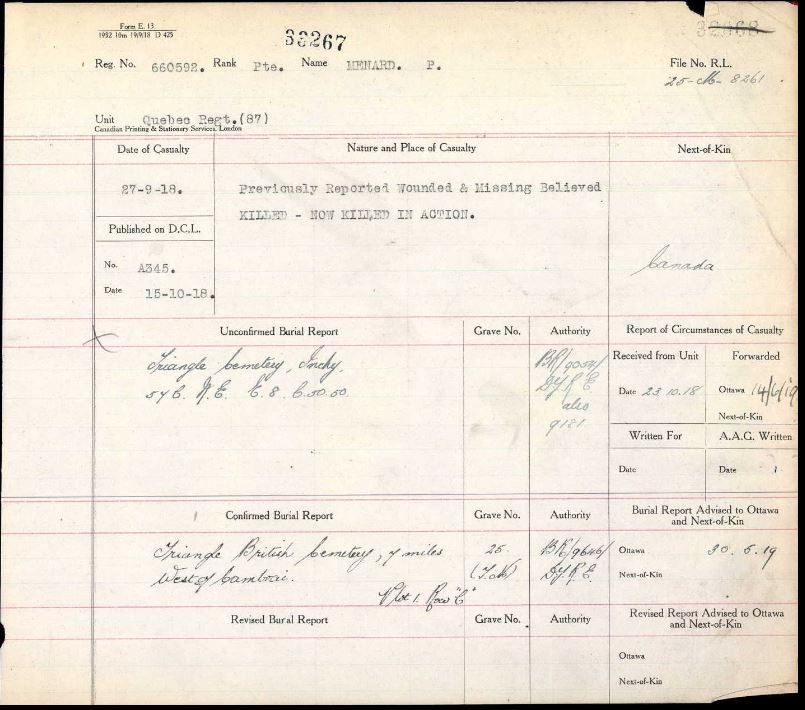 Form E. 13.
1932 10m 19/9/18 D 425
33267
32868
Reg. No. 660592. Rank Pte. Name MENARD. P.
File No. R.L.
25-M-8261
Unit Quebec Regt.(87)
Canadian Printing & Stationery Services, London
Date of Casualty
Nature and Place of Casualty
Next-of-Kin
27-9-18.
Previously Reported Wounded & Missing Believed
KILLED - NOW KILLED IN ACTION.
Published on D.C.L.
No. A345.
Date 15-10-18.
Canada
Unconfirmed Burial Report
Grave No.
Authority
Report of Circumstances of Casualty
Triangle Cemetery, Inchy.
57C. N.E. E. 8. C.50.50.
BR/9054/
D.G.R.E.
also
9181
Received from Unit
Forwarded
Date 23.10.18
Ottawa 14/6/19
Next-of-Kin
Written For
A.A.G. Written
Date
Date
Confirmed Burial Report
Grave No.
Authority
Burial Report Advised to Ottawa
and Next-of-Kin
Triangle British Cemetery, 7 miles
West of Cambrai.
Plot 1. Row "C"
25.
BR/9646/
Ottawa 30.6.19
Next-of-Kin
Revised Burial Report
Grave No.
Authority
Revised Report Advised to Ottawa
and Next-of-Kin
Ottawa
Next-of-Kin